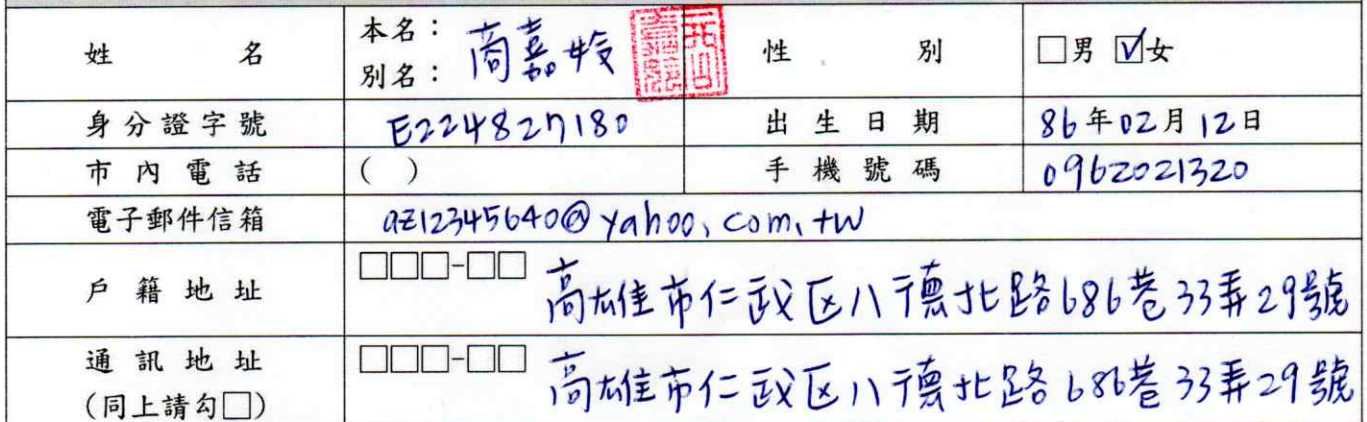 姓 名 本名： 別名： 商嘉玲 性 別 □男 ☑女
身分證字號 E224827180 出生日期 86年02月12日
市內電話 ( ) 手機號碼 0962021320
電子郵件信箱 az12345640@yahoo.com.tw
戶籍地址 □□□-□□ 高雄市仁武区八德北路686巷33弄29號
通訊地址 □□□-□□ 高雄市仁武区八德北路686巷33弄29號
(同上請勾□)